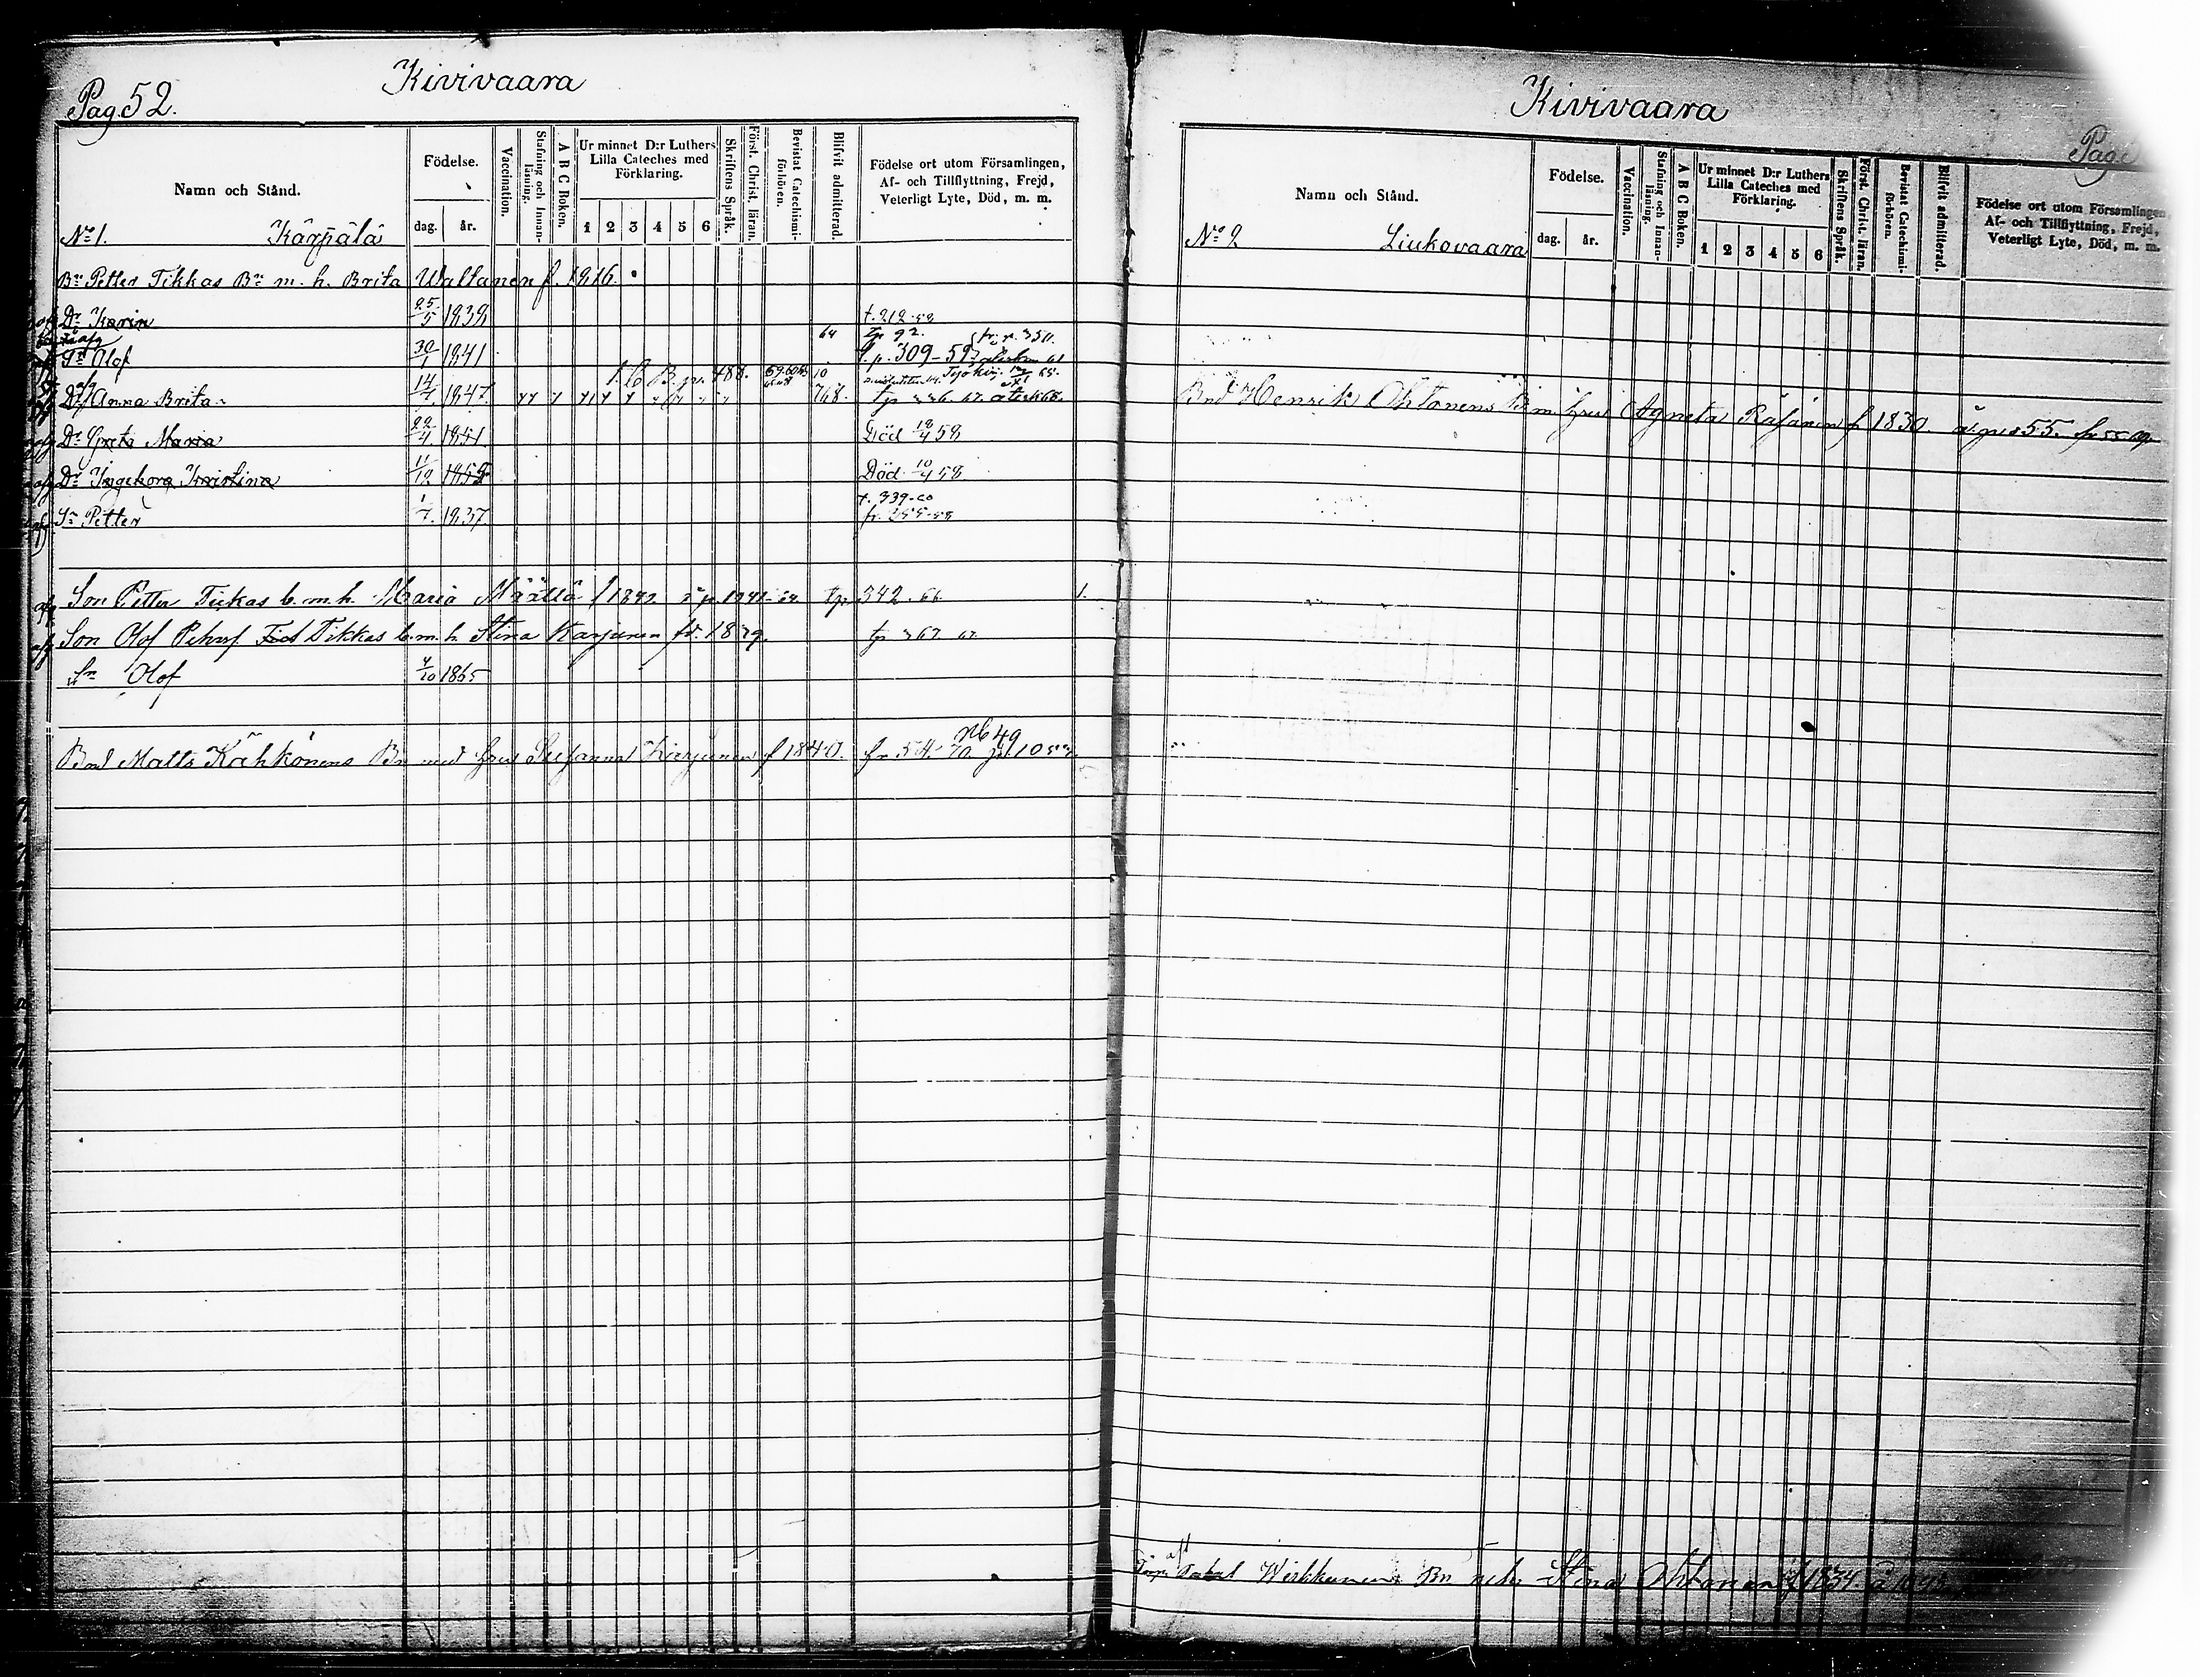 Pag. 52.
Kivivaara
Namn och Stånd.
Födelse.
dag. år.
Vaccination.
Stafning och Innan-läsning.
A B C Boken.
Ur minnet D:r Luthers Lilla Cateches med Förklaring.
1 2 3 4 5 6
Skriftens Språk.
Först. Christ. läran.
Bevistat Catechismi-förhören.
Blifvit admitterad.
Födelse ort utom Församlingen,
Af- och Tillflyttning, Frejd,
Veterligt Lyte, Död, m. m.
No 1. Kärpälä
Bn Petter Tikkas Bn m. h. Brita Waltanen f. 1816.
Dr Karin 25/5 1838 t. 212-58
64 tp 92.
Sn Olof 30/1 1841 t. p. 309-59
1. C B. p. 488. 10
Dr Anna Brita 14/7 1847 768. tp 67.
Dr Greta Maria 22/4 1851 Död 18/4 58
Dr Ingeborg Kristina 11/12 1852 Död 10/4 58
t. 339-60
Sn Petter 1/7. 1837 fr. 255-58
Son Petter Tickas b. m. h. Maria Määttä f 1842 tp 342. 66. 1.
Son Olof Petersf Tikkas b. m. h. Stina Karjunen fd. 1839. tp 367 67.
Sn Olof 4/10 1865
No 49
Bnd Matts Kähkönens Bn med hust Susanna Karjunen f 1840. fr 54. 70.
Kivivaara
Pag.
Namn och Stånd.
Födelse.
dag. år.
Vaccination.
Stafning och Innan-läsning.
A B C Boken.
Ur minnet D:r Luthers Lilla Cateches med Förklaring.
1 2 3 4 5 6
Skriftens Språk.
Först. Christ. läran.
Bevistat Catechismi-förhören.
Blifvit admitterad.
Födelse ort utom Församlingen,
Af- och Tillflyttning, Frejd,
Veterligt Lyte, Död, m. m.
No 2 Liukovaara
Bnd Henrik Ohtonens Bn m hust Agneta Räsänen f 1830. 55.
Wirkkunens Bn Stina Ohtonen f 1834.